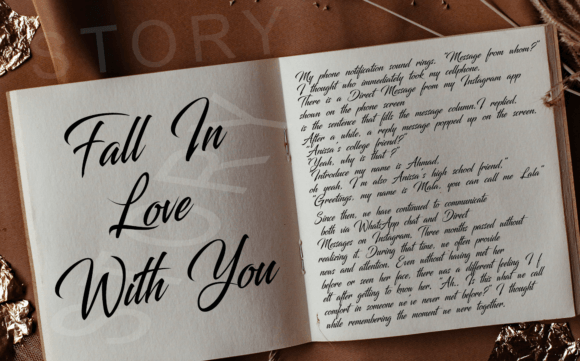 STORY
STORY
Fall In
Love
With You
My phone notification sound rings, "Message from whom?"
I thought who immediately took my cellphone.
There is a Direct Message from my Instagram app
shown on the phone screen
is the sentence that fills the message column. I replied,
After a while, a reply message popped up on the screen.
"Anissa's college friend?"
"Yeah, why is that?"
"Introduce my name is Ahmad,
oh yeah, I'm also Anissa's high school friend,"
"Greetings, my name is Mala, you can call me Lala"
Since then, we have continued to communicate
both via WhatsApp chat and Direct
Messages on Instagram. Three months passed without
realizing it. During that time, we often provide
news and attention. Even without having met her
before or seen her face, there was a different feeling I f
elt after getting to know her. "Ah.. Is this what we call
comfort in someone we've never met before? I thought
while remembering the moment we were together.